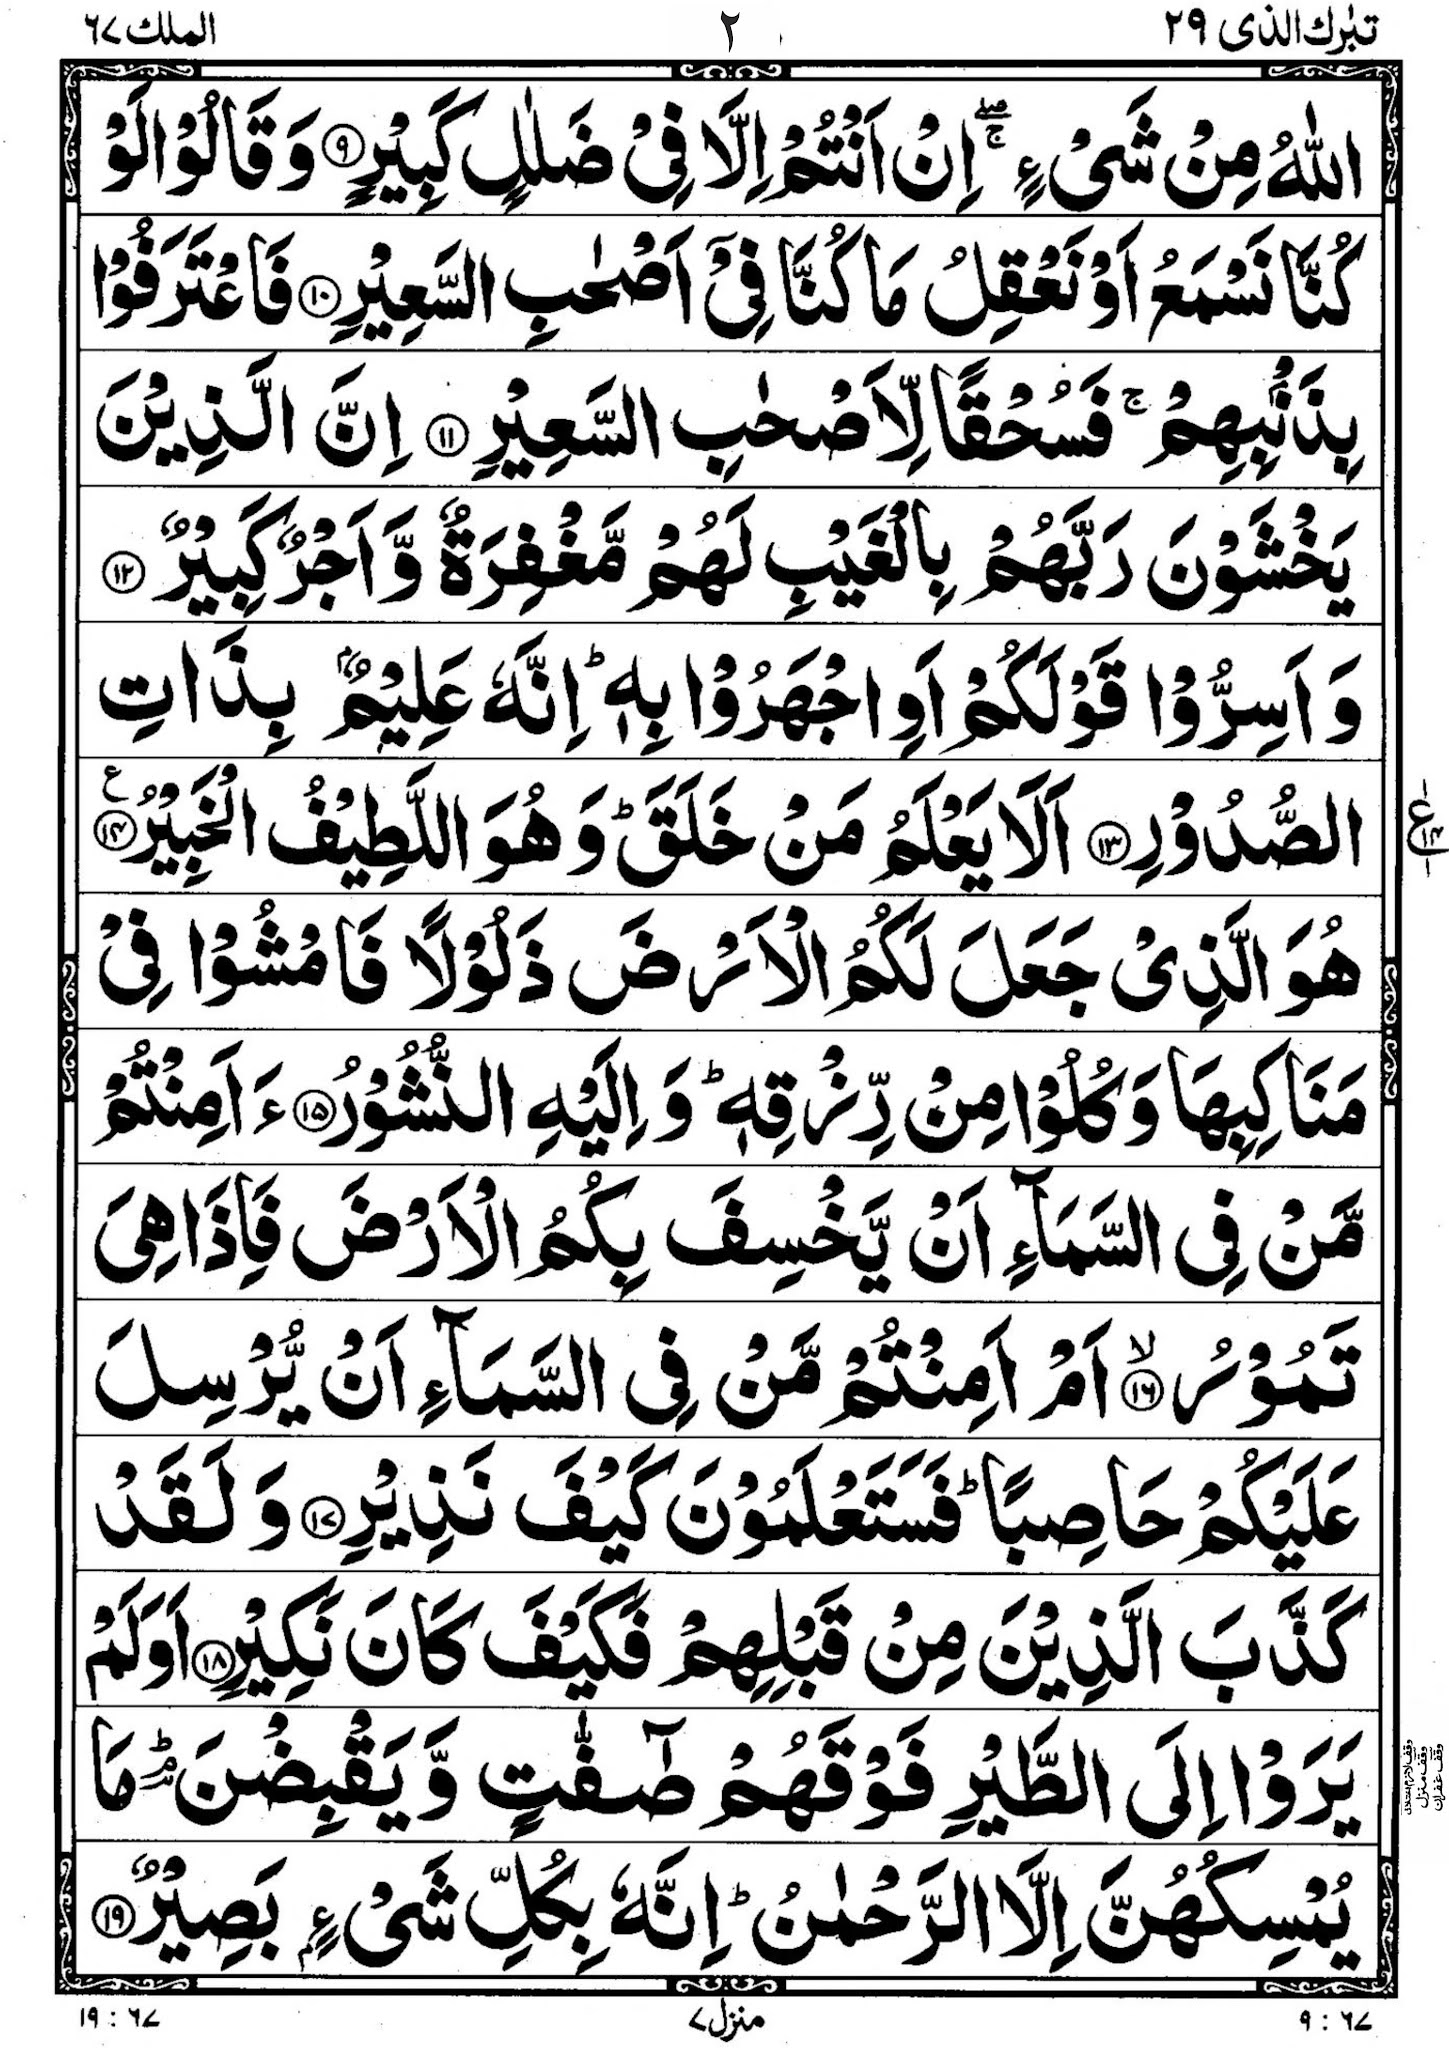 تبٰرك الذی ٢٩
٢
الملك ٦٧
اللّٰهُ مِنْ شَیْءٍ ۖۚ اِنْ اَنْتُمْ اِلَّا فِیْ ضَلٰلٍ كَبِیْرٍ ۹ وَ قَالُوْا لَوْ
كُنَّا نَسْمَعُ اَوْ نَعْقِلُ مَا كُنَّا فِیْۤ اَصْحٰبِ السَّعِیْرِ ۱۰ فَاعْتَرَفُوْا
بِذَنْۢبِهِمْ ۚ فَسُحْقًا لِّاَصْحٰبِ السَّعِیْرِ ۱۱ اِنَّ الَّذِیْنَ
یَخْشَوْنَ رَبَّهُمْ بِالْغَیْبِ لَهُمْ مَّغْفِرَةٌ وَّ اَجْرٌ كَبِیْرٌ ۱۲
وَ اَسِرُّوْا قَوْلَكُمْ اَوِ اجْهَرُوْا بِهٖ ؕ اِنَّهٗ عَلِیْمٌۢ بِذَاتِ
الصُّدُوْرِ ۱۳ اَلَا یَعْلَمُ مَنْ خَلَقَ ؕ وَ هُوَ اللَّطِیْفُ الْخَبِیْرُ ۱۴ ع
هُوَ الَّذِیْ جَعَلَ لَكُمُ الْاَرْضَ ذَلُوْلًا فَامْشُوْا فِیْ
مَنَاكِبِهَا وَ كُلُوْا مِنْ رِّزْقِهٖ ؕ وَ اِلَیْهِ النُّشُوْرُ ۱۵ ءَ اَمِنْتُمْ
مَّنْ فِی السَّمَآءِ اَنْ یَّخْسِفَ بِكُمُ الْاَرْضَ فَاِذَا هِیَ
تَمُوْرُ ۙ ۱۶ اَمْ اَمِنْتُمْ مَّنْ فِی السَّمَآءِ اَنْ یُّرْسِلَ
عَلَیْكُمْ حَاصِبًا ؕ فَسَتَعْلَمُوْنَ كَیْفَ نَذِیْرِ ۱۷ وَ لَقَدْ
كَذَّبَ الَّذِیْنَ مِنْ قَبْلِهِمْ فَكَیْفَ كَانَ نَكِیْرِ ۱۸ اَوَلَمْ
یَرَوْا اِلَی الطَّیْرِ فَوْقَهُمْ صٰٓفّٰتٍ وَّ یَقْبِضْنَ ؔؕۘ مَا
یُمْسِكُهُنَّ اِلَّا الرَّحْمٰنُ ؕ اِنَّهٗ بِكُلِّ شَیْءٍۭ بَصِیْرٌ ۱۹
وقف غفران
وقف منزل
٦٧ : ٩
منزل ٧
٦٧ : ١٩